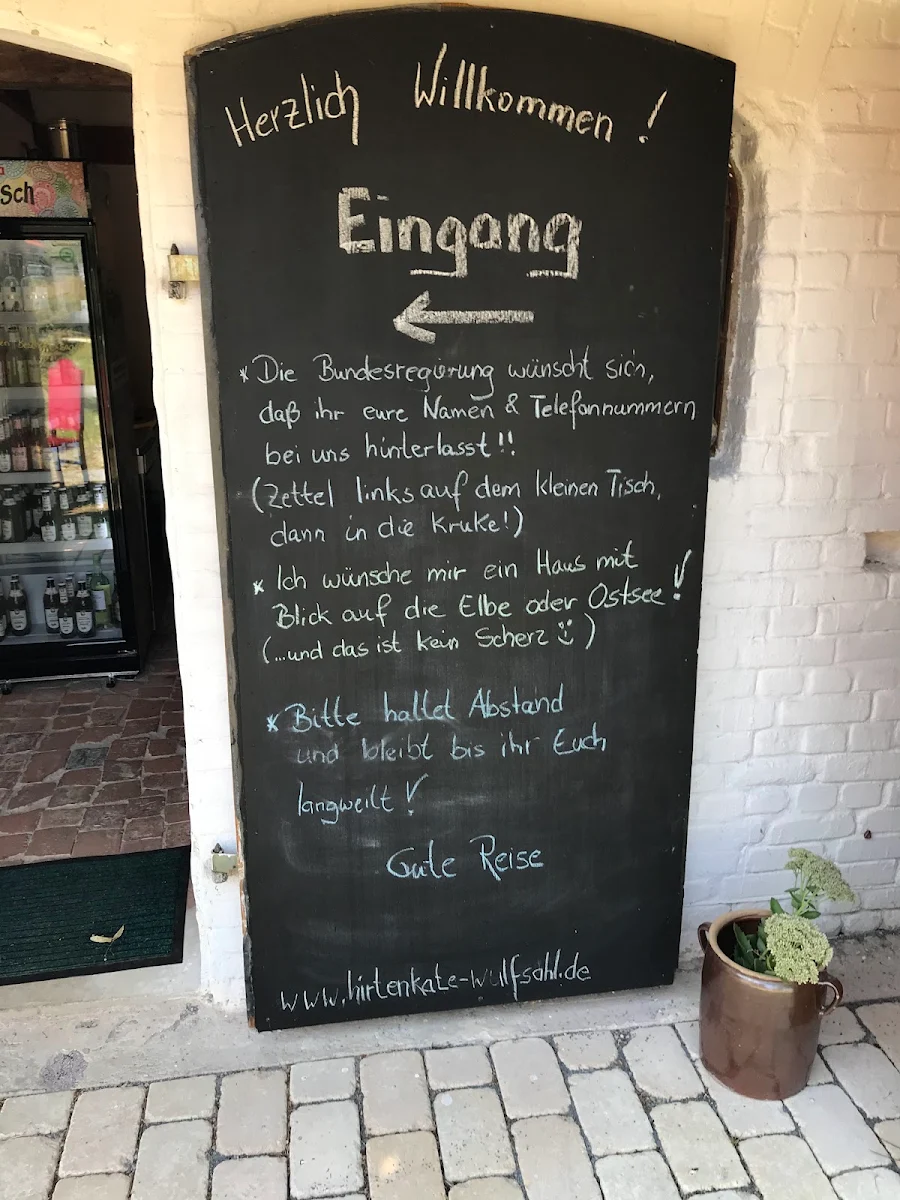 Herzlich Willkommen !
Eingang
←
sch
* Die Bundesregierung wünscht sich,
daß ihr eure Namen & Telefonnummern
bei uns hinterlasst!!
(Zettel links auf dem kleinen Tisch,
dann in die Kruke!)
* Ich wünsche mir ein Haus mit
Blick auf die Elbe oder Ostsee!
(...und das ist kein Scherz ☺)
* Bitte haltet Abstand
und bleibt bis ihr Euch
langweilt!
Gute Reise
www.hirtenkate-wulfsahl.de